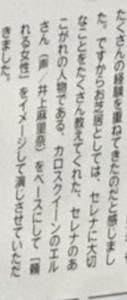 たくさんの経験を重ねてきたのだと感じまし
た。ですからお芝居としては、セレナに大切
なことをたくさん教えてくれた、セレナのあ
こがれの人物である、カロスクイーンのエル
さん（声／井上麻里奈）をベースにして「頼
れる女性」をイメージして演じさせていただ
きました。